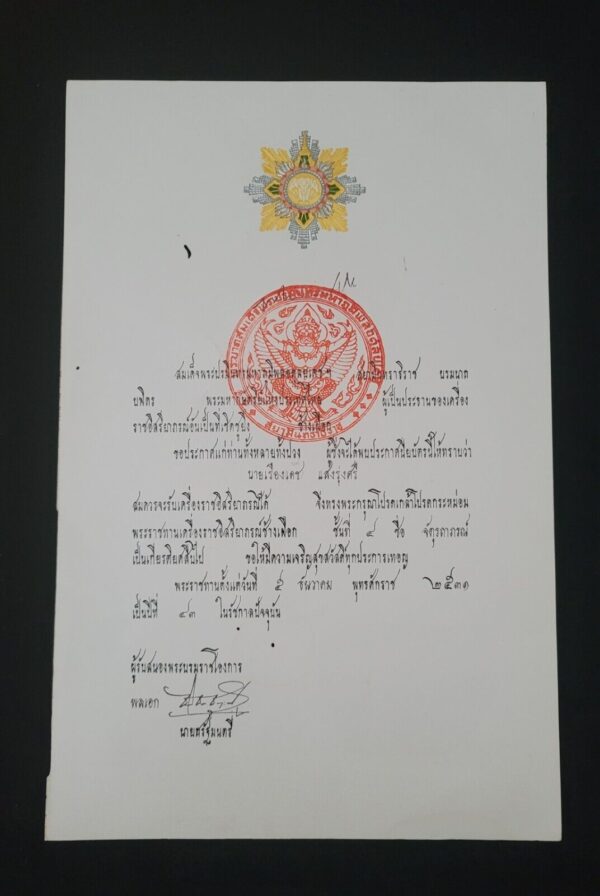 สมเด็จพระปรมินทรมหาภูมิพลอดุลยเดช ฯ สยามินทราธิราช บรมนาถ
บพิตร พระมหากษัตริย์แห่งประเทศไทย ผู้เป็นประธานของเครื่อง
ราชอิสริยาภรณ์อันเป็นที่เชิดชูยิ่ง ช้างเผือก
ขอประกาศแก่ท่านทั้งหลายทั้งปวง ผู้ซึ่งจะได้พบประกาศนียบัตรนี้ให้ทราบว่า
นายเรืองเดช แสงรุ่งศรี
สมควรจะรับเครื่องราชอิสริยาภรณ์ได้ จึงทรงพระกรุณาโปรดเกล้าโปรดกระหม่อม
พระราชทานเครื่องราชอิสริยาภรณ์ช้างเผือก ชั้นที่ ๔ ชื่อ จัตุรถาภรณ์
เป็นเกียรติยศสืบไป ขอให้มีความเจริญสุขสวัสดิ์ทุกประการเทอญ
พระราชทานตั้งแต่วันที่ ๕ ธันวาคม พุทธศักราช ๒๕๓๑
เป็นปีที่ ๔๓ ในรัชกาลปัจจุบัน
ผู้รับสนองพระบรมราชโองการ
พลเอก
นายกรัฐมนตรี